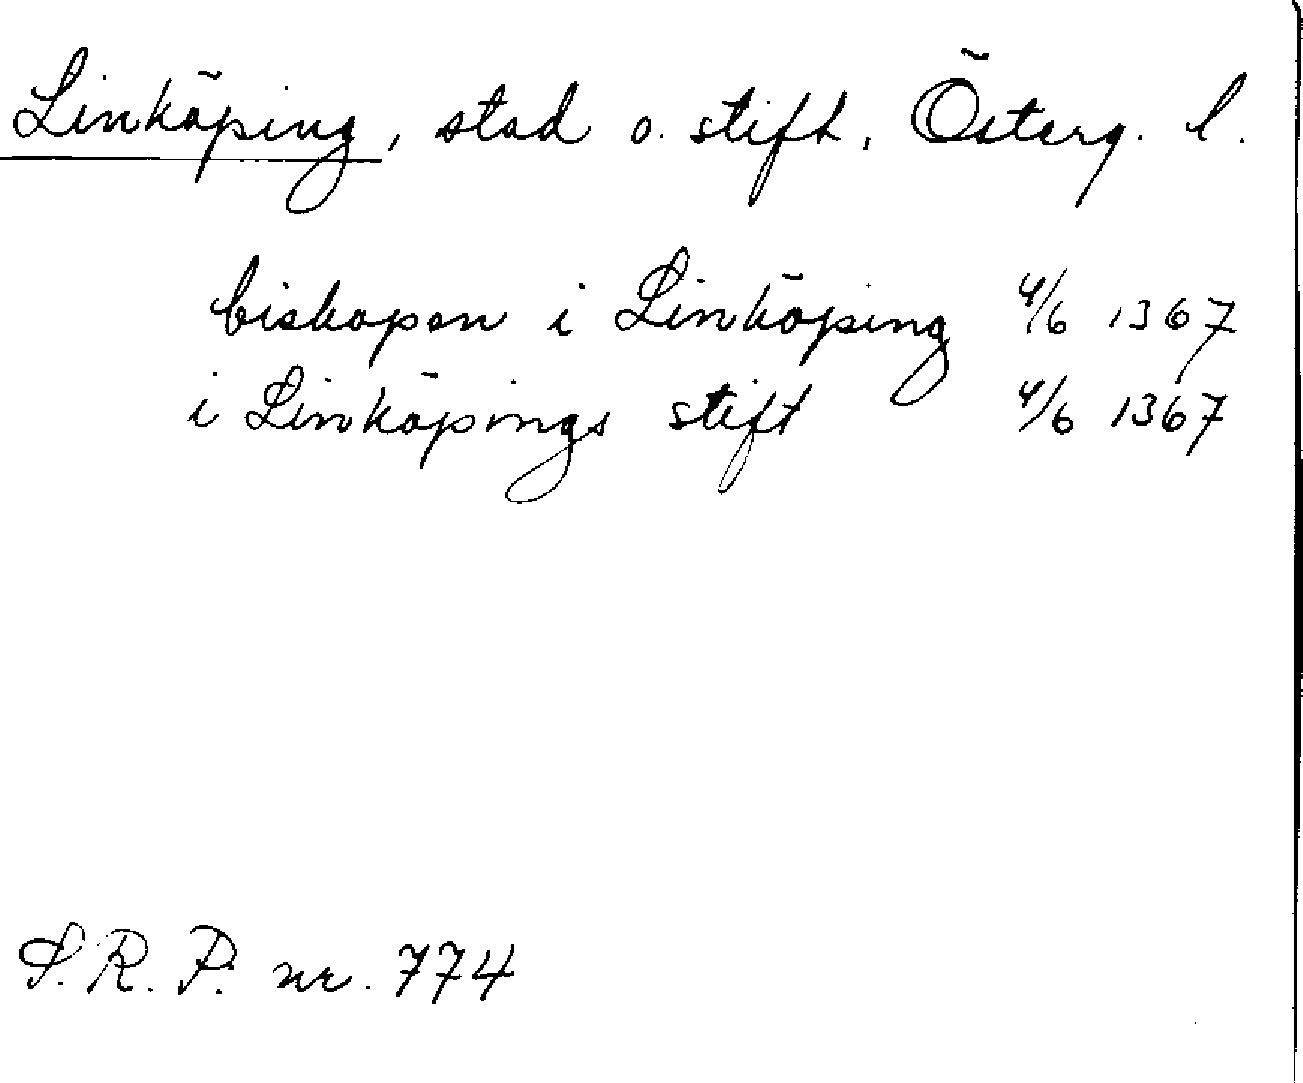 Linköping, stad o. stift, Österg. l.
biskopen i Linköping 4/6 1367
i Linköpings stift 4/6 1367
S.R.P. nr. 774